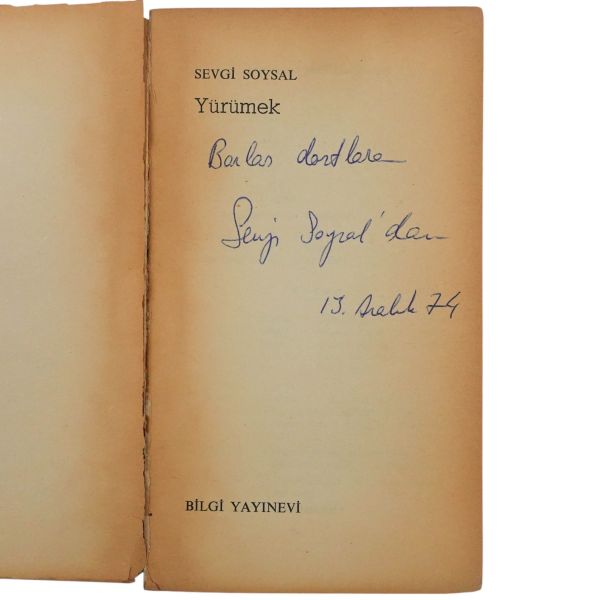 SEVGİ SOYSAL
Yürümek
Barlas dostlara
Sevgi Soysal'dan
13. Aralık 74
BİLGİ YAYINEVİ